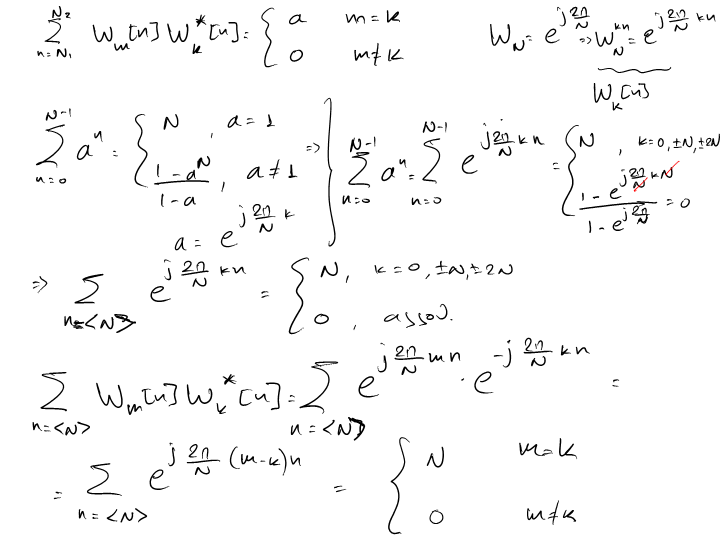 \sum_{n=N_1}^{N_2} W_m[n] W_k^*[n] = { a m=k ; 0 m≠k
W_N = e^{j\frac{2π}{N}} => W_N^{kn} = e^{j\frac{2π}{N}kn}
W_k[n]
\sum_{n=0}^{N-1} a^n = { N, a=1 ; \frac{1-a^N}{1-a}, a≠1
a = e^{j\frac{2π}{N}k}
=> \sum_{n=0}^{N-1} a^n = \sum_{n=0}^{N-1} e^{j\frac{2π}{N}kn} = { N, k=0,±N,±2N ; \frac{1-e^{j\frac{2π}{N}kN}}{1-e^{j\frac{2π}{N}}} = 0
=> \sum_{n=<N>} e^{j\frac{2π}{N}kn} = { N, k=0,±N,±2N ; 0, assov.
\sum_{n=<N>} W_m[n] W_k^*[n] = \sum_{n=<N>} e^{j\frac{2π}{N}mn} · e^{-j\frac{2π}{N}kn} =
= \sum_{n=<N>} e^{j\frac{2π}{N}(m-k)n} = { N m=k ; 0 m≠k